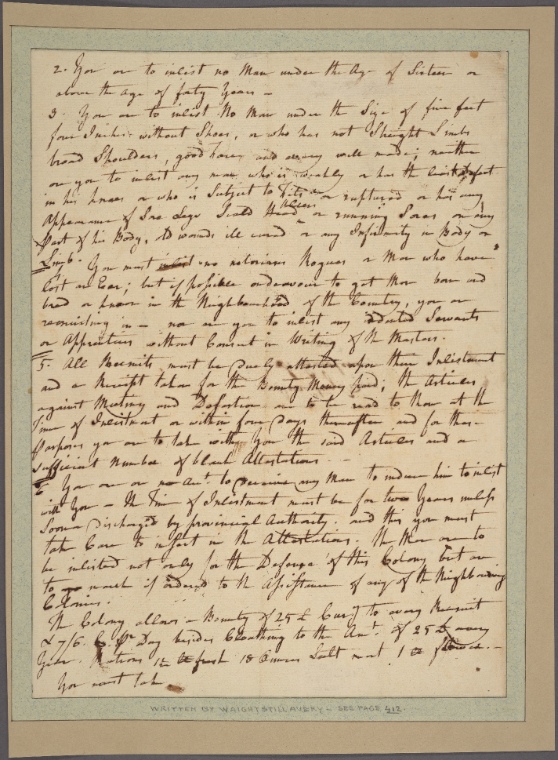 2. You are to inlist no Man under the Age of Sixteen or
above the age of forty Years –
3. You are to inlist No Man under the Size of five feet
four Inches without Shoes, or who has not Straight Limbs
broad Shoulders, good and every well made; neither
are you to inlist any man who is weakly or has the least defect
in his knees or who is Subject to fits or ruptured or has any
Appearance of Sore Legs Scald Head Ulcers or running Sores on any
Part of his Body, old wounds ill cured or any Infirmity in Body or
Limb. You must no notorious Rogues or Men who have
lost an Ear; but if possible endeavour to get Men born and
bred or known in the Neighbourhood of the Country, you are
recruiting in – nor are you to inlist any Servants
or Apprentices without Consent in Writing of the Masters.
5. All Recruits must be Duely attested upon their Inlistment
and a Receipt taken for the Bounty Money paid; the Articles
against Mutiny and Desertion are to be read to them at the
time of Inlistment or within four Days thereafter and for these
Purposes you are to take with You the said Articles and a
sufficient Number of blank Attestations.
6 You are on no Acct. to any Man to induce him to inlist
with You – the Time of Inlistment must be for two Years unless
Sooner Discharged by provincial Authority. and this you must
take Care to insert in the Attestations. The Men are to
be inlisted not only for the Defence of this Colony but are
to march if ordered to the Assistance of any of the Neighboring
Colonies.
The Colony allows a Bounty of 25 £ Curry to every Recruit
& 7/6. Pr. Day besides Cloathing to the Amt. of 25 £ every
Year. Rations fresh 18 Ounces Salt meat 1 lb flower. –
You must take
WRITTEN BY WAIGHTSTILL AVERY – SEE PAGE 412.